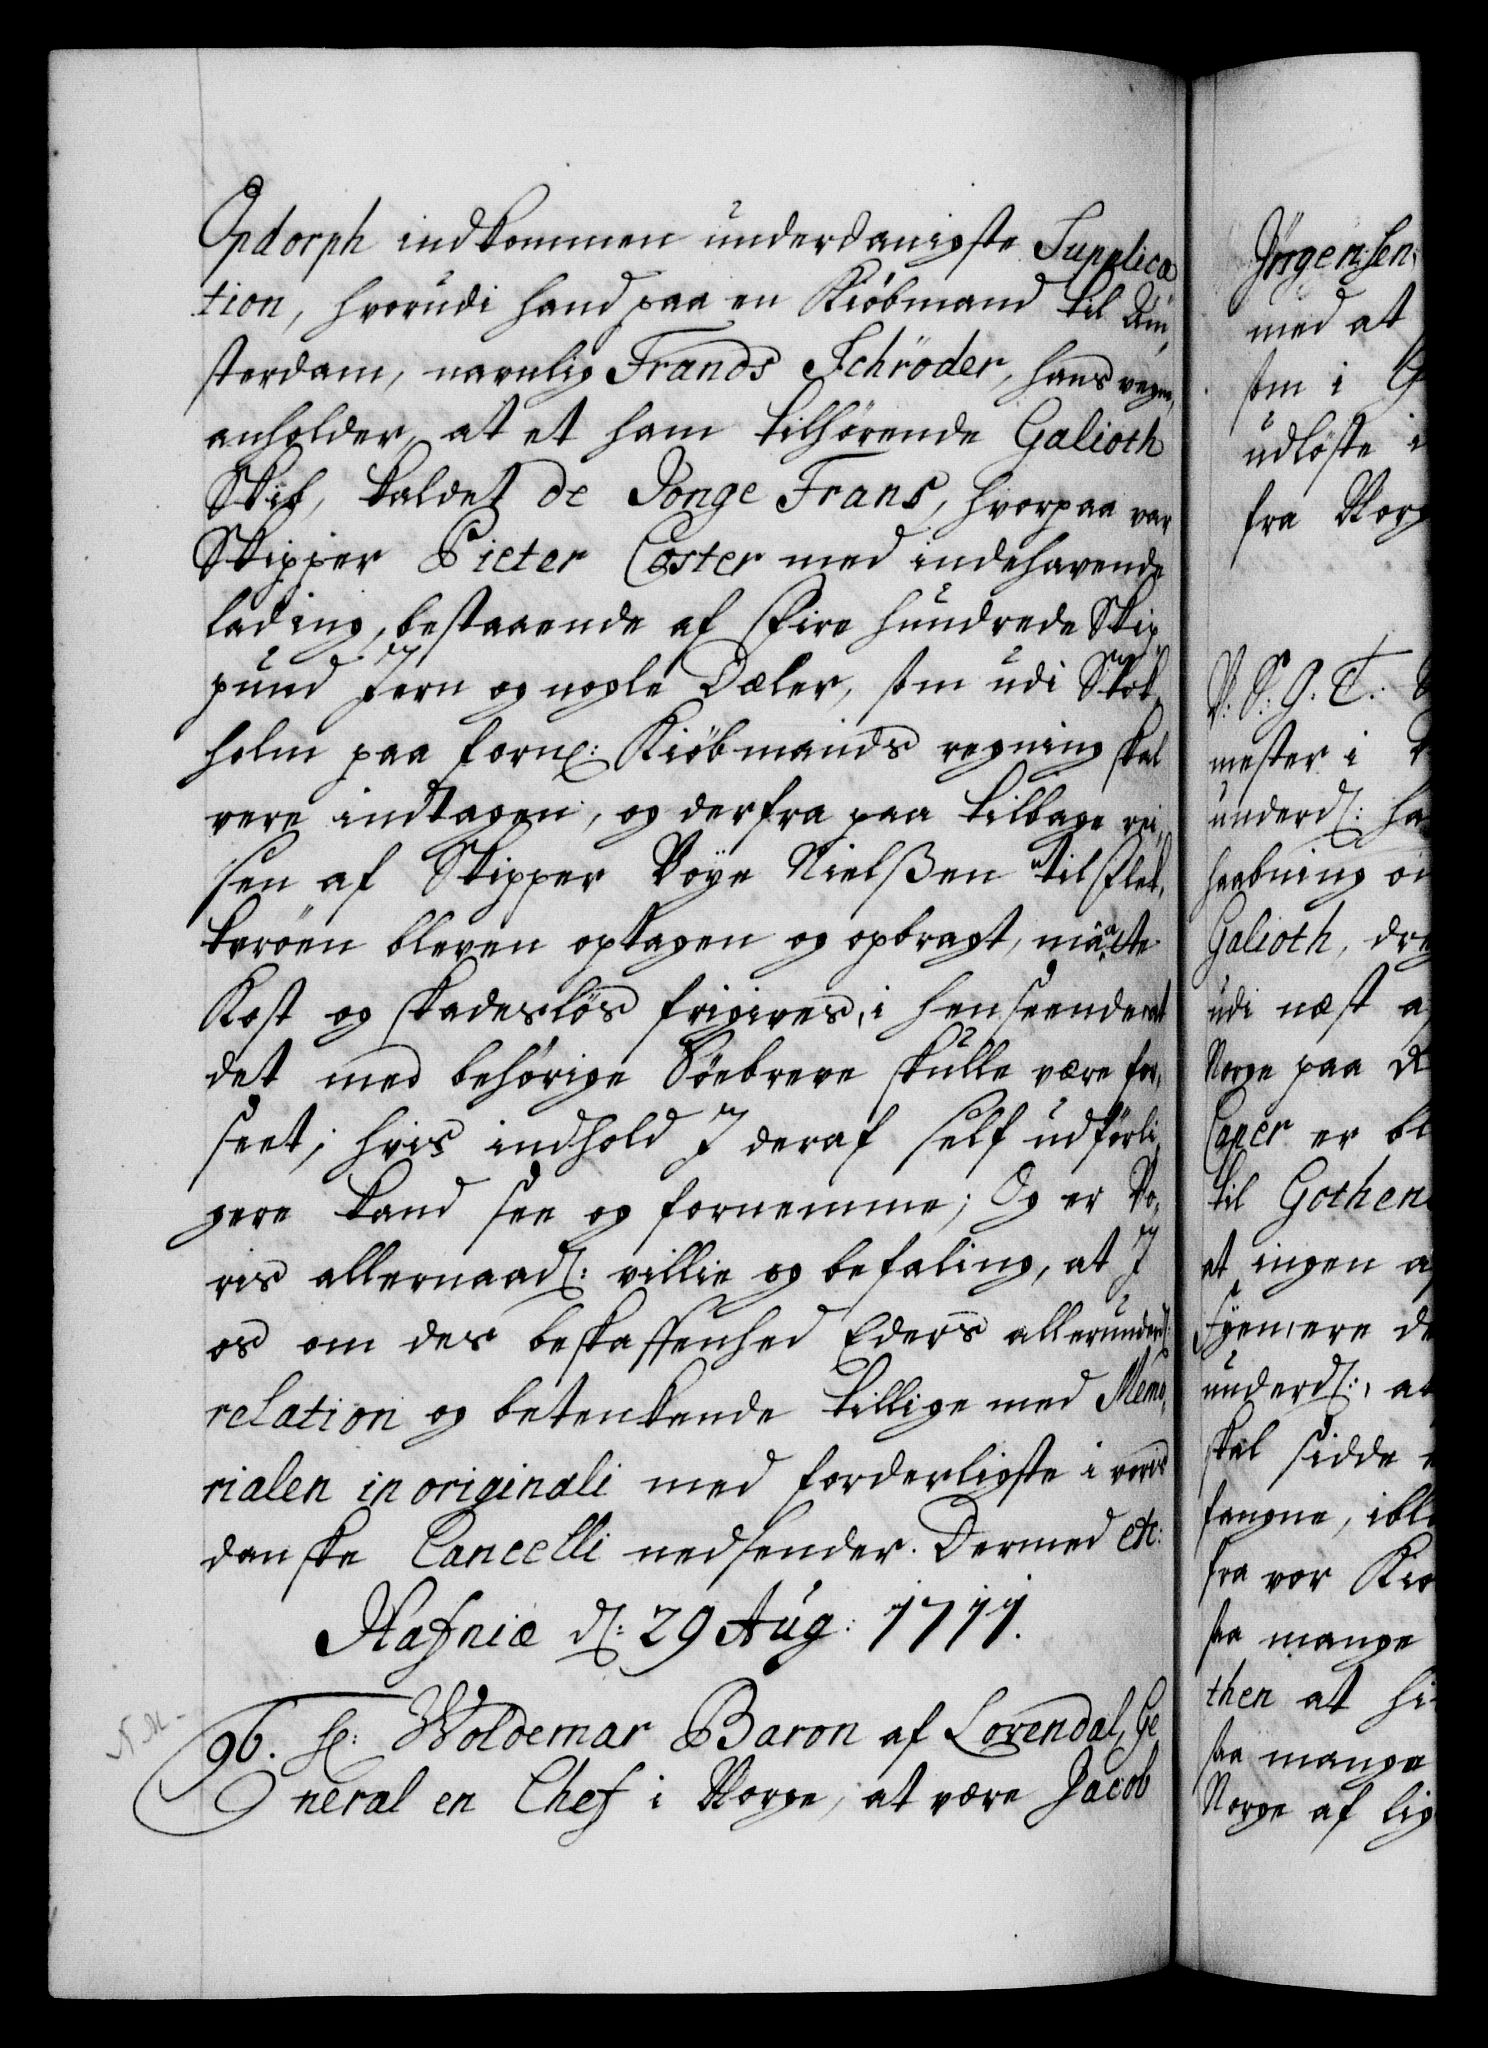 Opdorph indkommen underdanigste Supplica
tion, hvorudi hand paa en Kiöbmand til Am,
sterdam, navnlig Frands Schröder, hans vegne,
anholder, at et ham tilhörende Galioth
Skib, kaldet de Jonge Frans, hvorpaa var
Skipper Pieter Coster med indehavende
lading, bestaaende af Fire hundrede Skip,
pund Jern og nogle Dæler, som udi Stok,
holm paa forne: Kiöbmands regning skal
vere indtagen, og derfra paa tilbage rei,
sen af Skipper Boye Nielßen til Flek,
keröen bleven optagen og opbragt, maatte
Kost og skadeslös frigives, i henseende at
det med behörige Söebreve skulle være for,
seet; hvis indhold I deraf self udförli,
gere kand see og fornemme; Og er Vo,
ris allernaads: villie og befaling, at I
os om des beskaffenhed Eders allerunderd:
relation og betenkende tillige med Memo,
rialen in originali med forderligste i voris
danske Cancelli nedsender. Dermed etc:
Hafniæ d: 29 Aug: 1711.
96. Hr: Woldemar Baron af Lövendal, Ge
neral en Chef i Norge, at være Jacob
Jörgensen
med at
som i
udlöste i
fra Norge
V. S. G. T.
mester i
underd:
haabning om
Galioth,
udi næst
Norge paa
Caper er bl
til Gothen
at ingen
underd:, at
skal sidde
fangne, ibl
fra vor
saa mange
then at hi
saa mange
Norge af lig